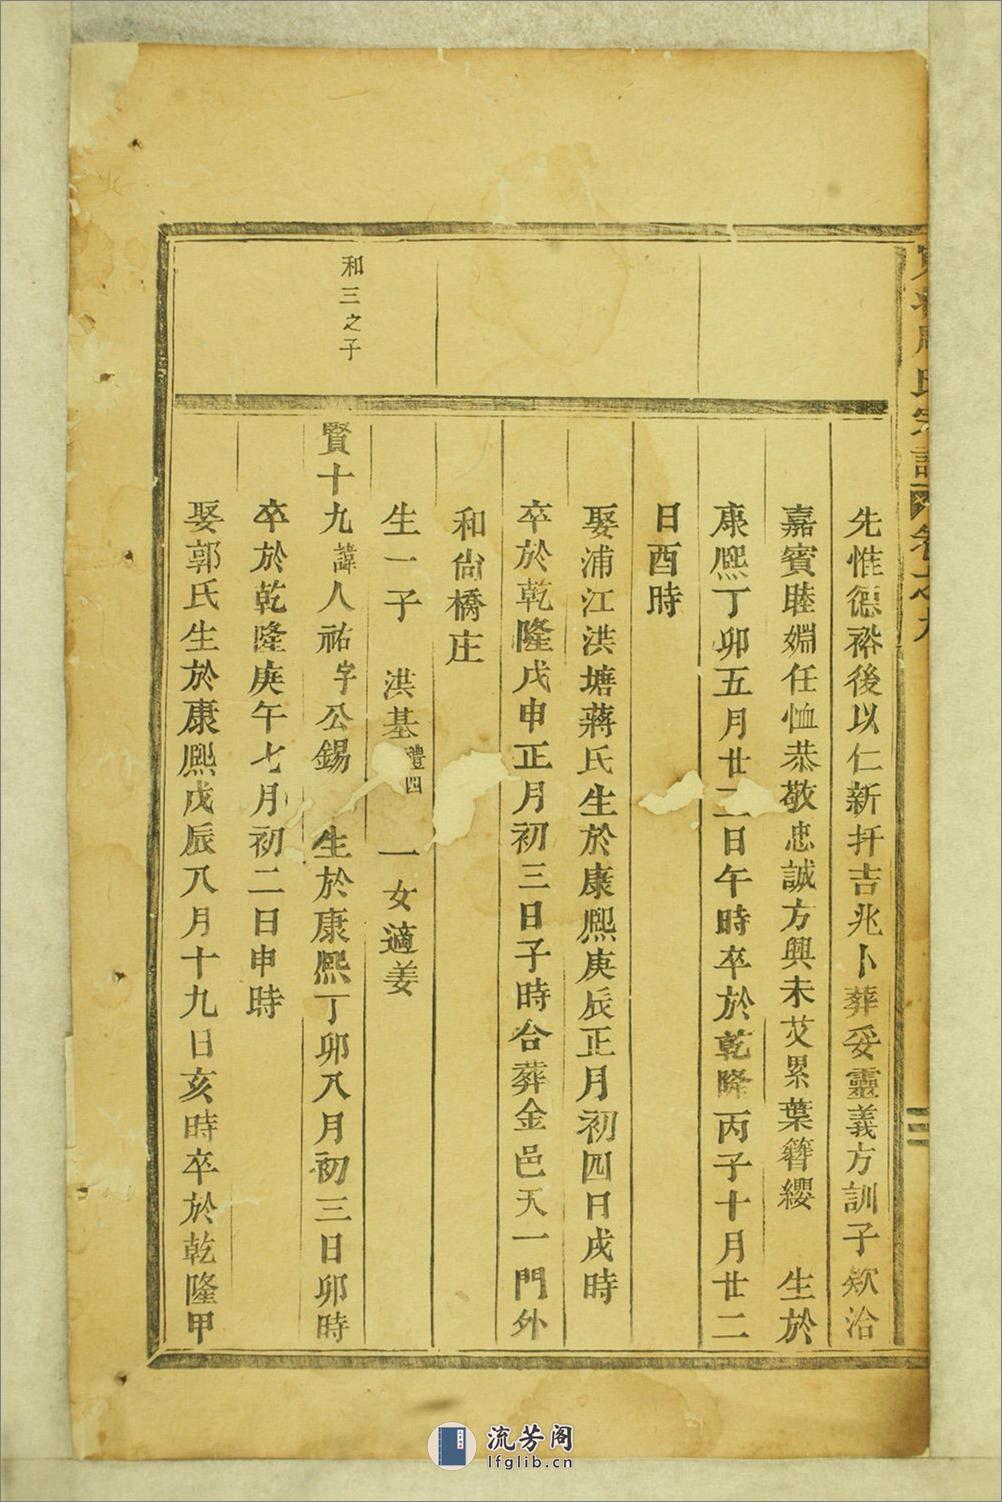 周氏宗譜
先惟德裕後以仁新扞吉兆卜葬妥靈義方訓子欸洽
嘉賓睦婣任恤恭敬忠誠方興未艾累葉簪纓 生於
康熙丁卯五月廿二日午時卒於乾隆丙子十月廿二
日酉時
娶浦江洪塘蔣氏生於康熙庚辰正月初四日戌時
卒於乾隆戊申正月初三日子時合葬金邑天一門外
和尙橋庄
生一子 洪基禮四 一女適姜
和三之子
賢十九諱人祐字公錫 生於康熙丁卯八月初三日卯時
卒於乾隆庚午七月初二日申時
娶郭氏生於康熙戊辰八月十九日亥時卒於乾隆甲
流芳阁
lfglib.cn